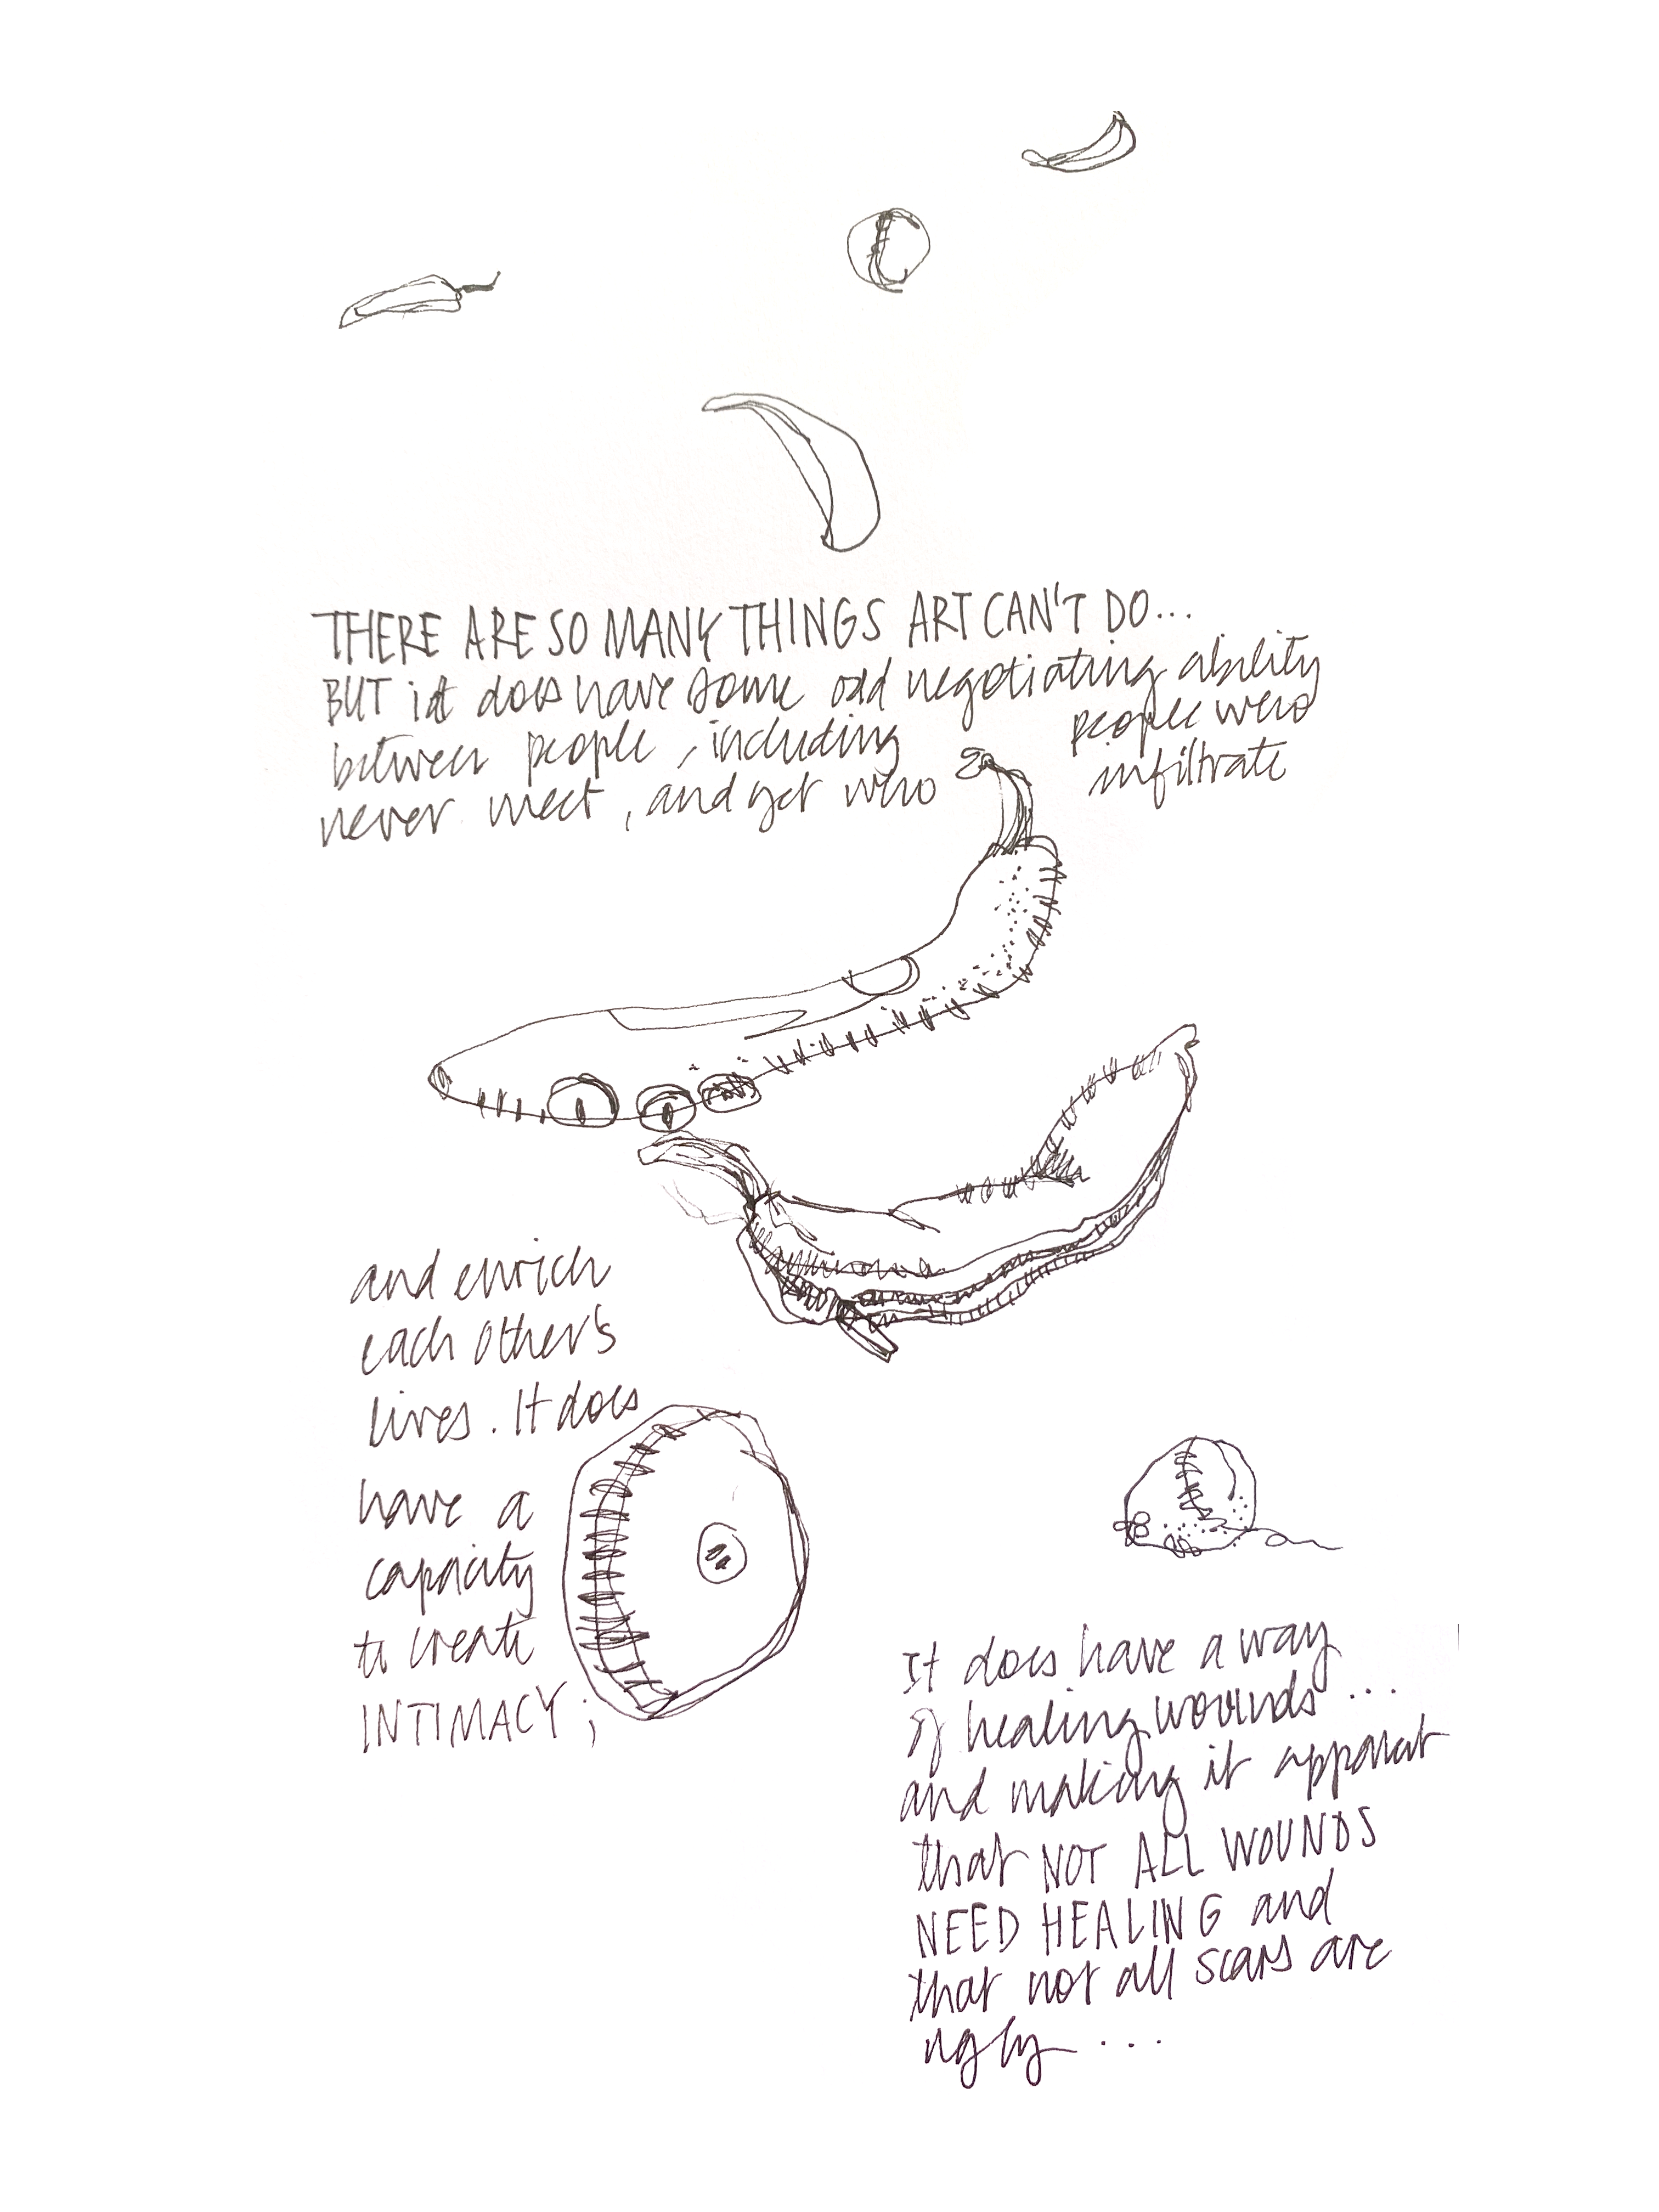 THERE ARE SO MANY THINGS ART CAN'T DO...
BUT it does have some odd negotiating ability
between people, including people who
never meet, and yet who infiltrate
and enrich
each other's
lives. It does
have a
capacity
to create
INTIMACY;
It does have a way
of healing wounds...
and making it apparent
that NOT ALL WOUNDS
NEED HEALING and
that not all scars are
ugly...